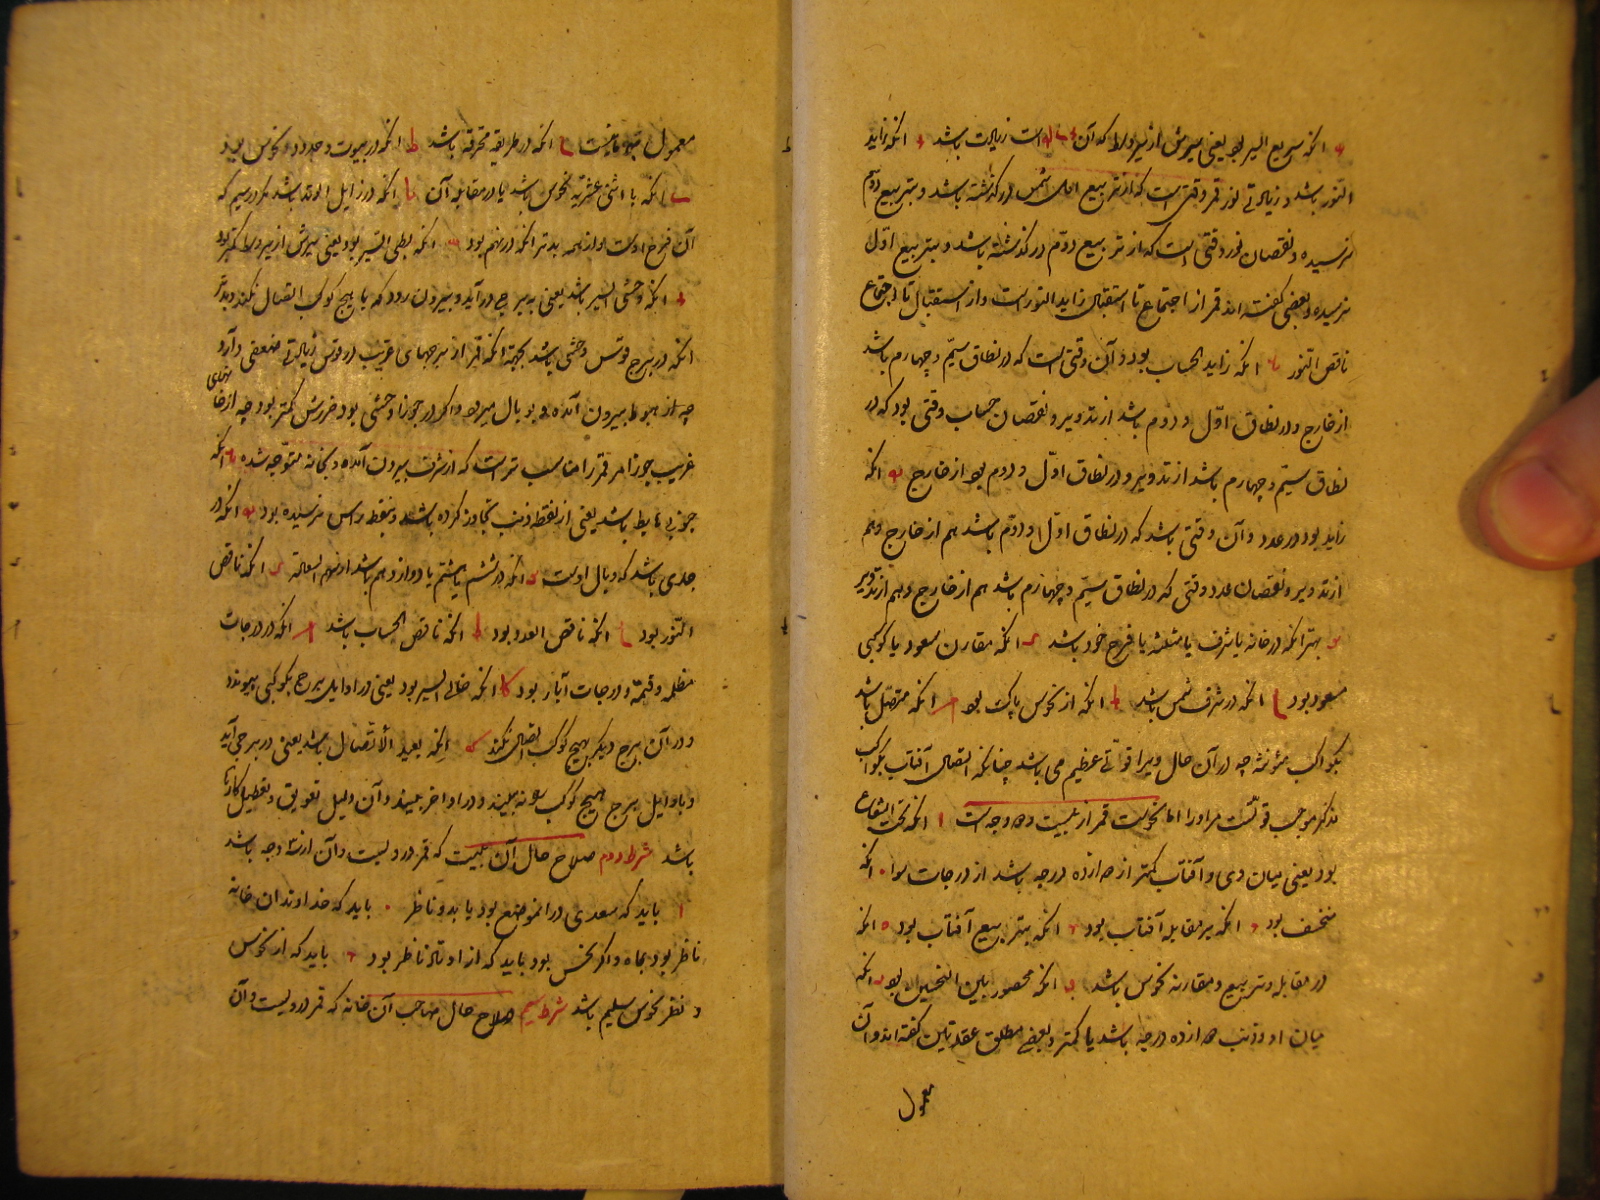 انکه سریع السیر بود یعنی سیرش از سیر وسط که آن است زیادت باشد انکه زاید
النور باشد و زیادتی نور قمر وقتی است که از تربیع اول شمس در گذشته باشد و بتربیع دوم
نرسیده و نقصان نور وقتی است که از تربیع دوم در گذشته باشد و بتربیع اول
نرسیده و بعضی گفته اند قمر از اجتماع تا استقبال زاید النورست و از استقبال تا اجتماع
ناقص النور انکه زاید الحساب بود و آن وقتی است که در نطاق سیم و چهارم باشد
از خارج و در نطاق اول و دوم باشد از تدویر و نقصان حساب وقتی بود که در
نطاق سیم و چهارم باشد از تدویر و در نطاق اول و دوم بود از خارج انکه
زاید بود در عدد و آن وقتی باشد که در نطاق اول و دوم باشد هم از خارج و هم
از تدویر و نقصان عدد وقتی که در نطاق سیم و چهارم باشد هم از خارج و هم از تدویر
بهتر انکه در خانه یا شرف یا مثلثه یا فرح خود باشد انکه مقارن سعود یا کوکبی
مسعود بود انکه در شرف شمس باشد انکه از نحوس پاک بود انکه متصل باشد
بکواکب مؤنثه چه در آن حال ویرا قوتی عظیم می باشد چنانکه اتصال آفتاب بکواکب
مذکر موجب قوتست مر او را اما نحوست قمر از بیست و وجه است ا انکه تحت الشعاع
بود یعنی میان وی و آفتاب کمتر از دوازده درجه باشد از درجات سوا انکه
منخسف بود انکه بر مقابله آفتاب بود انکه بتربیع آفتاب بود ه انکه
در مقابله و تربیع و مقارنه نحوس باشد انکه محصور بین النحسین بود انکه
میان او و ذنب دوازده درجه باشد یا کمتر و بعضی مطلق عقدتین گفته اند و آن
معمول
معمول نیست انکه در طریقه محترقه باشد ط انکه در بیوت و حدود نحوس بود
انکه با اثنی عشریه نحوس باشد یا در مقابله آن یا انکه در زایل الوتد باشد مگر در سیم که
آن فرح اوست و از همه بدتر انکه در نهم بود انکه بطی السیر بود یعنی سیرش از سیر وسط کمتر بود
انکه وحشی السیر باشد یعنی به برجی در آید و بیرون رود که با هیچ کوکب اتصال نکند و بدتر
انکه در برج قوس وحشی باشد بجهة انکه قمر از برجهای غریب در قوس زیادتی ضعفی دارد
چه از هبوط بیرون آمده و بوبال میرود و اگر در جوزا وحشی بود ضررش کمتر بود چه از خانهای
غریب جوزا مر قمر را مناسب ترست که از شرف بیرون آمده و بخانه متوجه شده انکه
جنوبی هابط باشد یعنی از نقطه ذنب تجاوز کرده باشد و بنقطه راس نرسیده بود انکه در
جدی باشد که وبال اوست انکه در ششم یا هشتم یا دوازدهم باشد انکه ناقص
النور بود انکه ناقص العدد بود انکه ناقص الحساب باشد انکه در درجات
مظلمه و قتمه و درجات آبار بود کا انکه خالی السیر بود یعنی در اوایل برج بکوکبی پیوندد
و در آن برج دیگر بهیچ کوکب اتصال نکند انکه بعید الاتصال باشد یعنی در برجی آید
و باوایل برج هیچ کوکب نه بیند و در اواخر بیند و آن دلیل تعویق و تعطیل کارها
باشد شرط دوم صلاح حال آن بیت که قمر دروست و آن از سه وجه باشد
ا باید که سعدی در انموضع بود یا بدو ناظر باید که خداوند آن خانه
ناظر بود بماه و اگر نحس بود باید که از اوتاد ناظر بود باید که از نحوس
و نظر نحوس سلیم باشد شرط سیم صلاح حال صاحب آن خانه که قمر دروست و آن